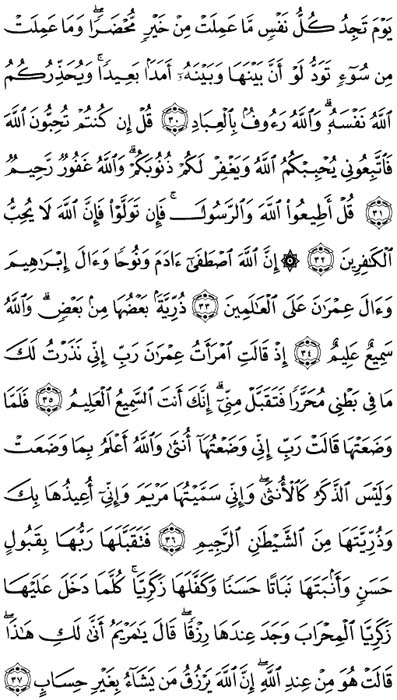 يَوْمَ تَجِدُ كُلُّ نَفْسٍ مَّا عَمِلَتْ مِنْ خَيْرٍ مُّحْضَرًا وَمَا عَمِلَتْ
مِن سُوٓءٍ تَوَدُّ لَوْ أَنَّ بَيْنَهَا وَبَيْنَهُۥٓ أَمَدَۢا بَعِيدًا ۗ وَيُحَذِّرُكُمُ
ٱللَّهُ نَفْسَهُۥ ۗ وَٱللَّهُ رَءُوفُۢ بِٱلْعِبَادِ ٣٠ قُلْ إِن كُنتُمْ تُحِبُّونَ ٱللَّهَ
فَٱتَّبِعُونِى يُحْبِبْكُمُ ٱللَّهُ وَيَغْفِرْ لَكُمْ ذُنُوبَكُمْ ۗ وَٱللَّهُ غَفُورٌ رَّحِيمٌ
٣١ قُلْ أَطِيعُوا۟ ٱللَّهَ وَٱلرَّسُولَ ۖ فَإِن تَوَلَّوْا۟ فَإِنَّ ٱللَّهَ لَا يُحِبُّ
ٱلْكَٰفِرِينَ ٣٢ ۞ إِنَّ ٱللَّهَ ٱصْطَفَىٰٓ ءَادَمَ وَنُوحًا وَءَالَ إِبْرَٰهِيمَ
وَءَالَ عِمْرَٰنَ عَلَى ٱلْعَٰلَمِينَ ٣٣ ذُرِّيَّةَۢ بَعْضُهَا مِنۢ بَعْضٍ ۗ وَٱللَّهُ
سَمِيعٌ عَلِيمٌ ٣٤ إِذْ قَالَتِ ٱمْرَأَتُ عِمْرَٰنَ رَبِّ إِنِّى نَذَرْتُ لَكَ
مَا فِى بَطْنِى مُحَرَّرًا فَتَقَبَّلْ مِنِّىٓ ۖ إِنَّكَ أَنتَ ٱلسَّمِيعُ ٱلْعَلِيمُ ٣٥ فَلَمَّا
وَضَعَتْهَا قَالَتْ رَبِّ إِنِّى وَضَعْتُهَآ أُنثَىٰ وَٱللَّهُ أَعْلَمُ بِمَا وَضَعَتْ
وَلَيْسَ ٱلذَّكَرُ كَٱلْأُنثَىٰ ۖ وَإِنِّى سَمَّيْتُهَا مَرْيَمَ وَإِنِّىٓ أُعِيذُهَا بِكَ
وَذُرِّيَّتَهَا مِنَ ٱلشَّيْطَٰنِ ٱلرَّجِيمِ ٣٦ فَتَقَبَّلَهَا رَبُّهَا بِقَبُولٍ
حَسَنٍ وَأَنۢبَتَهَا نَبَاتًا حَسَنًا وَكَفَّلَهَا زَكَرِيَّا ۖ كُلَّمَا دَخَلَ عَلَيْهَا
زَكَرِيَّا ٱلْمِحْرَابَ وَجَدَ عِندَهَا رِزْقًا ۖ قَالَ يَٰمَرْيَمُ أَنَّىٰ لَكِ هَٰذَا ۖ
قَالَتْ هُوَ مِنْ عِندِ ٱللَّهِ ۖ إِنَّ ٱللَّهَ يَرْزُقُ مَن يَشَآءُ بِغَيْرِ حِسَابٍ ٣٧